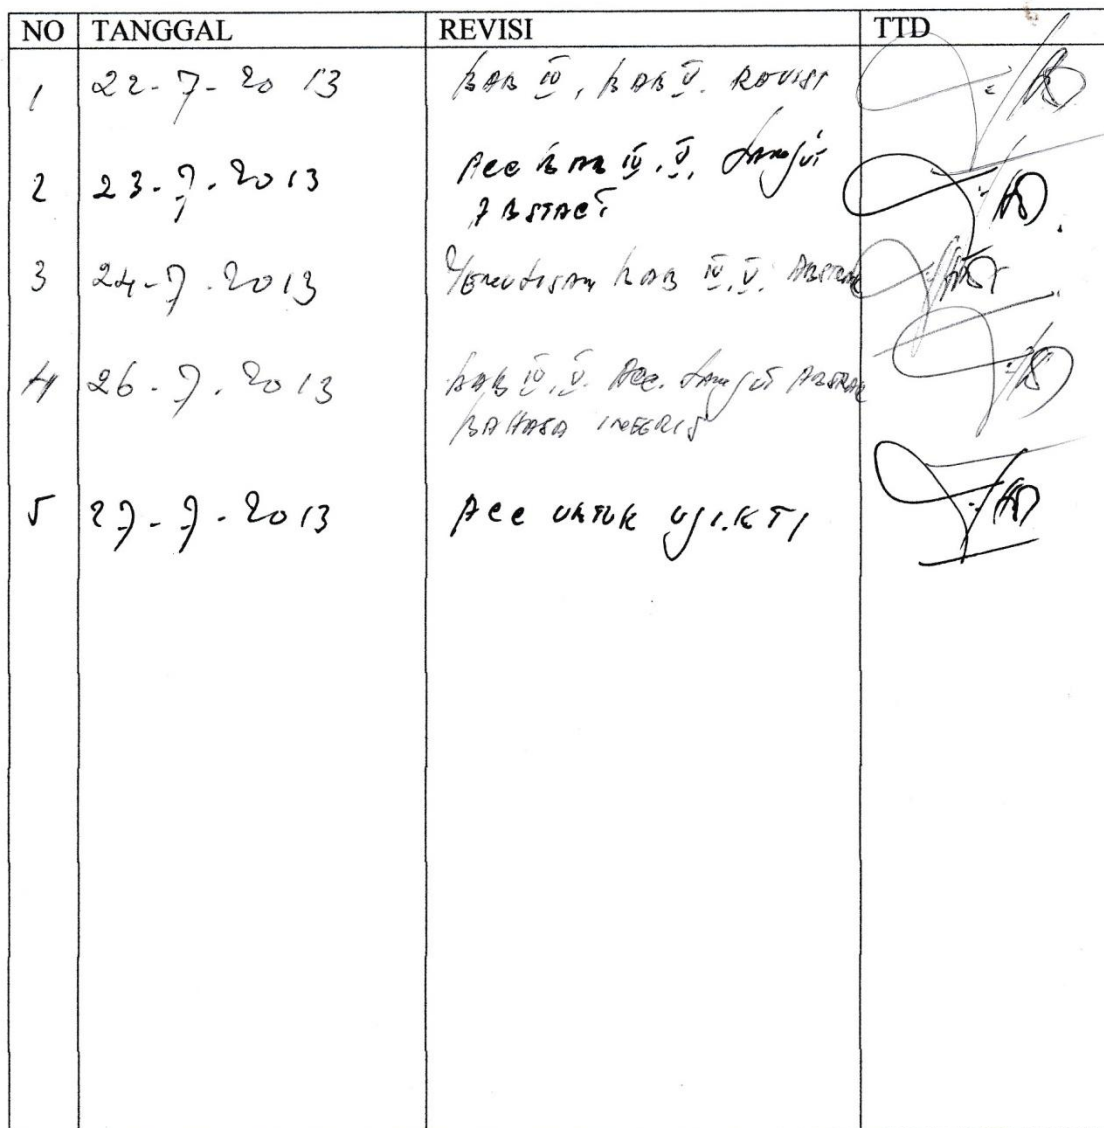 NO TANGGAL REVISI TTD
1 22-7-2013 BAB IV, BAB V. REVISI
2 23-7-2013 Acc BAB IV, V, Lanjut
ABSTACT
3 24-7-2013 Penulisan BAB IV, V, ABSTRAK
4 26-7-2013 BAB IV, V. Acc. Lanjut ABSTRAK
BAHASA INGGRIS
5 27-7-2013 Acc UNTUK UJI.KTI